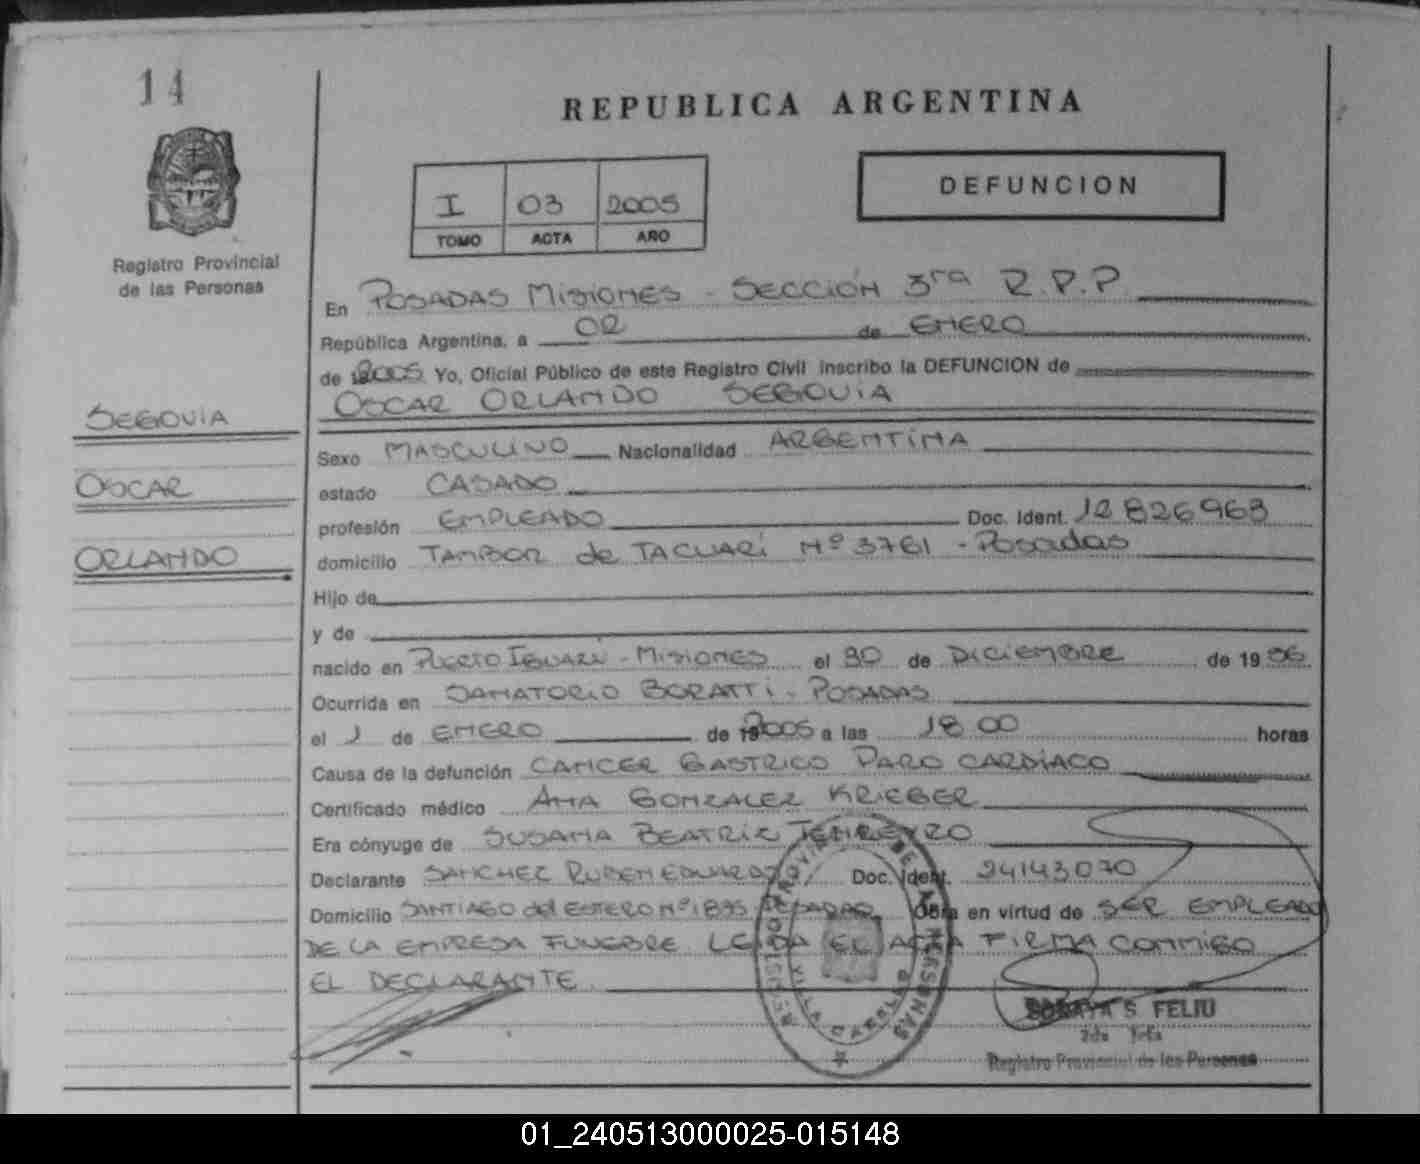 14
REPUBLICA ARGENTINA
I 03 2005
TOMO ACTA AÑO
DEFUNCION
Registro Provincial
de las Personas
En POSADAS MISIONES - SECCIÓN 3ra R.P.P
República Argentina, a 02 de ENERO
de 2005 Yo, Oficial Público de este Registro Civil inscribo la DEFUNCION de
OSCAR ORLANDO SEGOVIA
SEGOVIA
OSCAR
ORLANDO
Sexo MASCULINO Nacionalidad ARGENTINA
estado CASADO
profesión EMPLEADO Doc. Ident. 12826963
domicilio TAMBOR de TACUARí Nº 3761 - Posadas
Hijo de
y de
nacido en PUERTO IGUAZU - MISIONES el 30 de DICIEMBRE de 1956
Ocurrida en SANATORIO BORATTI - POSADAS
el 1 de ENERO de 2005 a las 18 00 horas
Causa de la defunción CANCER GASTRICO PARO CARDíACO
Certificado médico ANA GONZALEZ KRIEGER
Era cónyuge de SUSANA BEATRIZ
Declarante SANCHEZ RUBEN EDUARDO Doc. Ident. 24143070
Domicilio SANTIAGO del ESTERO Nº 1895 POSADAS Obra en virtud de SER EMPLEADO
DE LA EMPRESA FUNEBRE LEIDA EL ACTA FIRMA CONMIGO
EL DECLARANTE
REGISTRO PROVINCIAL DE LAS PERSONAS
VILLA CABELLO
SORAYA S. FELIU
Registro Provincial de las Personas
01_240513000025-015148